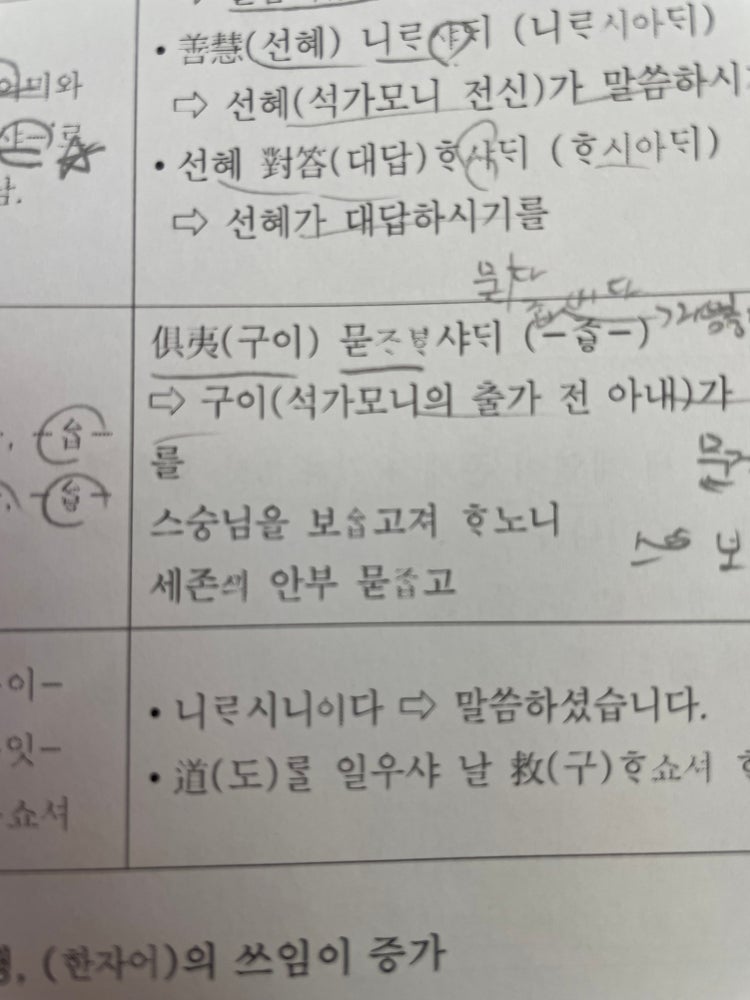 • 善慧(선혜) 니ᄅᆞ샤ᄃᆡ (니ᄅᆞ시아ᄃᆡ)
어미와
⇨ 선혜(석가모니 전신)가 말씀하시
• 선혜 對答(대답)ᄒᆞ샤ᄃᆡ (ᄒᆞ시아ᄃᆡ)
⇨ 선혜가 대답하시기를
俱夷(구이) 묻ᄌᆞᄫᆞ샤ᄃᆡ (-ᄌᆞᆸ-)
⇨ 구이(석가모니의 출가 전 아내)가
를
스숭님을 보ᅀᆞᆸ고져 ᄒᆞ노니
세존ㅅ긔 안부 묻ᄌᆞᆸ고
이-
잇-
쇼셔
• 니ᄅᆞ시니이다 ⇨ 말씀하셨습니다.
• 道(도)ᄅᆞᆯ 일우샤 날 救(구)ᄒᆞ쇼셔
(한자어)의 쓰임이 증가